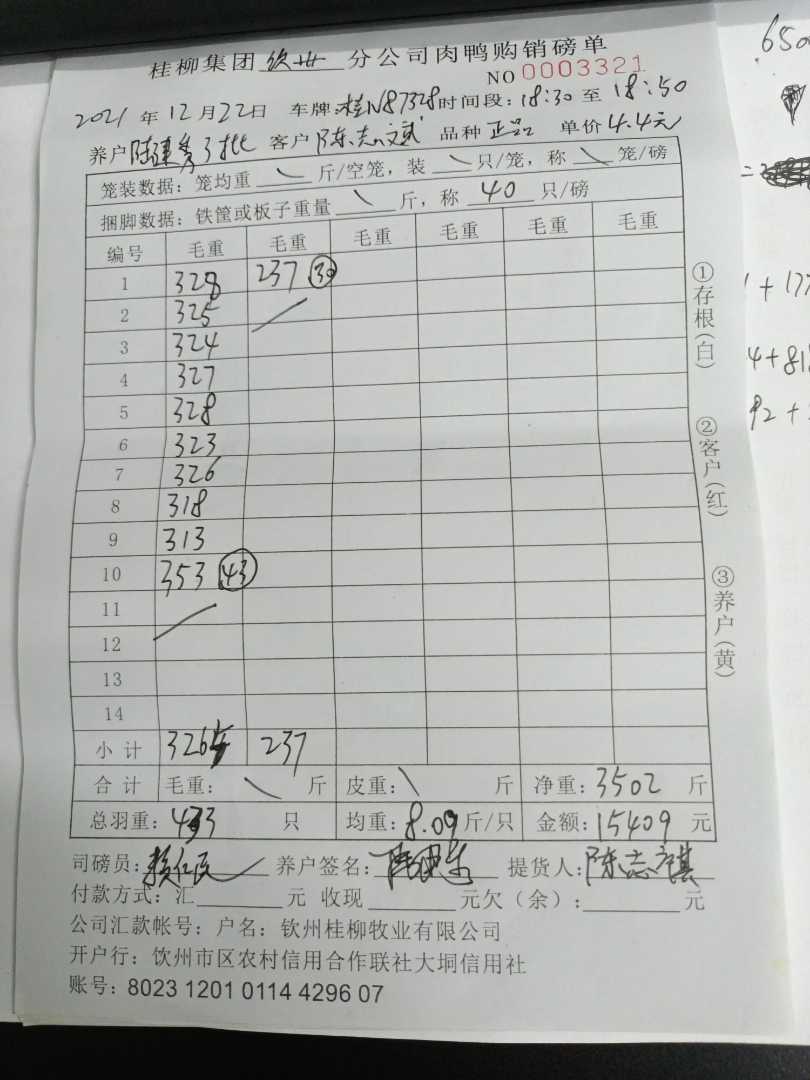 桂柳集团 钦州 分公司肉鸭购销磅单
NO 0003321
2021 年 12 月 22 日 车牌:桂N87328 时间段:18:30 至 18:50
养户 陆建 批 客户 陈志斌 品种 正品 单价 4.4元
笼装数据:笼均重 \ 斤/空笼,装 \ 只/笼,称 \ 笼/磅
捆脚数据:铁筐或板子重量 \ 斤,称 40 只/磅
编号 毛重 毛重 毛重 毛重 毛重 毛重
1 328 237 (30)
2 325
3 324
4 327
5 328
6 323
7 326
8 318
9 313
10 353 (43)
11
12
13
14
小 计 3265 237
合 计 毛重: \ 斤 皮重: \ 斤 净重:3502 斤
总羽重:433 只 均重:8.09 斤/只 金额:15409 元
司磅员: 养户签名: 提货人:陈志
付款方式:汇 元 收现 元欠(余): 元
公司汇款帐号:户名:钦州桂柳牧业有限公司
开户行:饮州市区农村信用合作联社大垌信用社
账号:8023 1201 0114 4296 07
①存根(白)
②客户(红)
③养户(黄)
650
+ 177
4+818
92+